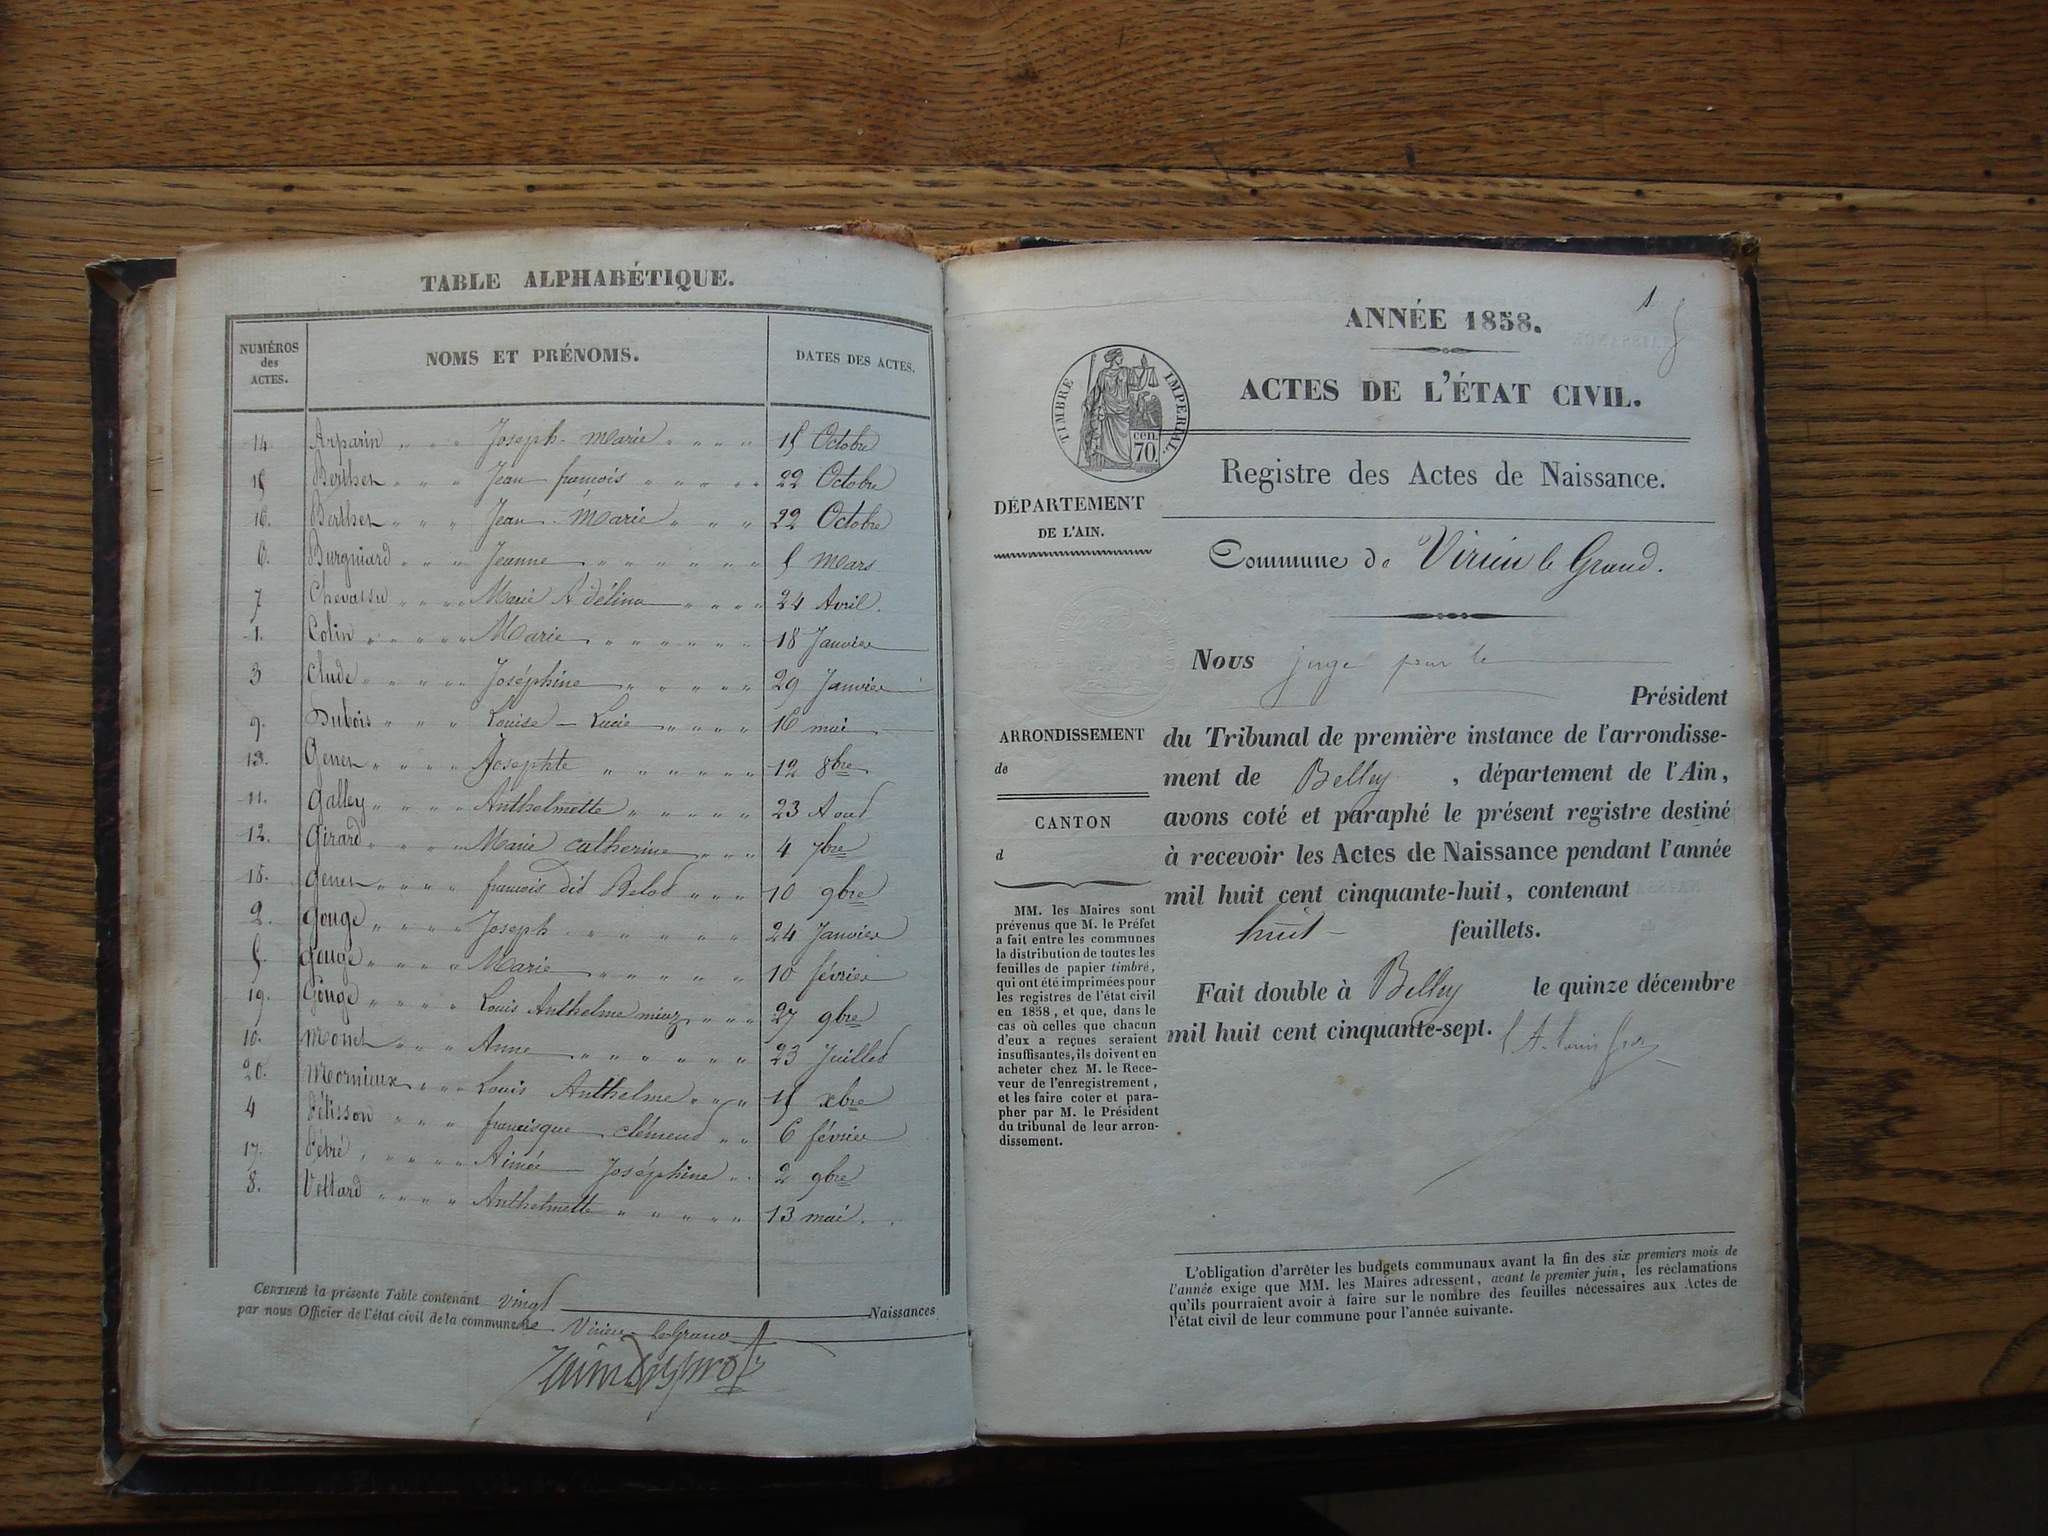 TABLE ALPHABÉTIQUE.
NUMÉROS des ACTES. NOMS ET PRÉNOMS. DATES DES ACTES.
14. Arparin " " " Joseph-Marie " " " " 15 Octobre
15 Berthet " " " Jean françois " " " " " 22 Octobre
16. Berthet " " " Jean-Marie " " " " 22 Octobre
6. Burgniard " " " Jeanne " " " " " " " 5 Mars
7 Chevassu " " " " Marie Adélina " " " " 24 Avril.
1. Colin " " " " " Marie " " " " " " " 18 Janvier
3 Clude " " " " " Joséphine " " " " " 29 Janvier
9. Dubois " " " " Louise-Lucie " " " " 16 mai
13. Genet " " " " Josephte " " " " " " 12 8bre
11. Galley " " " " Anthelmette " " " " " 23 Aout
12. Girard " " " " Marie Catherine " " " 4 7bre
18. Genet " " " " françois dit Belod " " " 10 9bre
2. Gouge " " " " Joseph " " " " " " 24 Janvier
5. Gouge " " " " Marie " " " " " 10 février
19. Gouge " " " " Louis Anthelme " " " 27 9bre
10. Monet " " " Anne " " " " " " 23 Juillet
20. Mornieux " " " Louis Anthelme " " " 15 xbre
4 Pélisson " " " francisque clément " " 6 février
17. Pétré " " " " " Aimée Joséphine " " 2 9bre
8. Vettard " " " " Anthelmette " " " " " 13 mai.
CERTIFIÉ la présente Table contenant vingt Naissances
par nous Officier de l'état civil de la commune de Virieu le Grand
1
ANNÉE 1858.
ACTES DE L'ÉTAT CIVIL.
TIMBRE IMPÉRIAL.
cen.
70.
Registre des Actes de Naissance.
DÉPARTEMENT
DE L'AIN.
Commune de Virieu le Grand.
Nous juge pour le
Président
du Tribunal de première instance de l'arrondisse-
ment de Belley, département de l'Ain,
avons coté et paraphé le présent registre destiné
à recevoir les Actes de Naissance pendant l'année
mil huit cent cinquante-huit, contenant
huit feuillets.
Fait double à Belley le quinze décembre
mil huit cent cinquante-sept.
ARRONDISSEMENT
de
CANTON
d
MM. les Maires sont
prévenus que M. le Préfet
a fait entre les communes
la distribution de toutes les
feuilles de papier timbré,
qui ont été imprimées pour
les registres de l'état civil
en 1858, et que, dans le
cas où celles que chacun
d'eux a reçues seraient
insuffisantes, ils doivent en
acheter chez M. le Rece-
veur de l'enregistrement,
et les faire coter et para-
pher par M. le Président
du tribunal de leur arron-
dissement.
L'obligation d'arrêter les budgets communaux avant la fin des six premiers mois de
l'année exige que MM. les Maires adressent, avant le premier juin, les réclamations
qu'ils pourraient avoir à faire sur le nombre des feuilles nécessaires aux Actes de
l'état civil de leur commune pour l'année suivante.